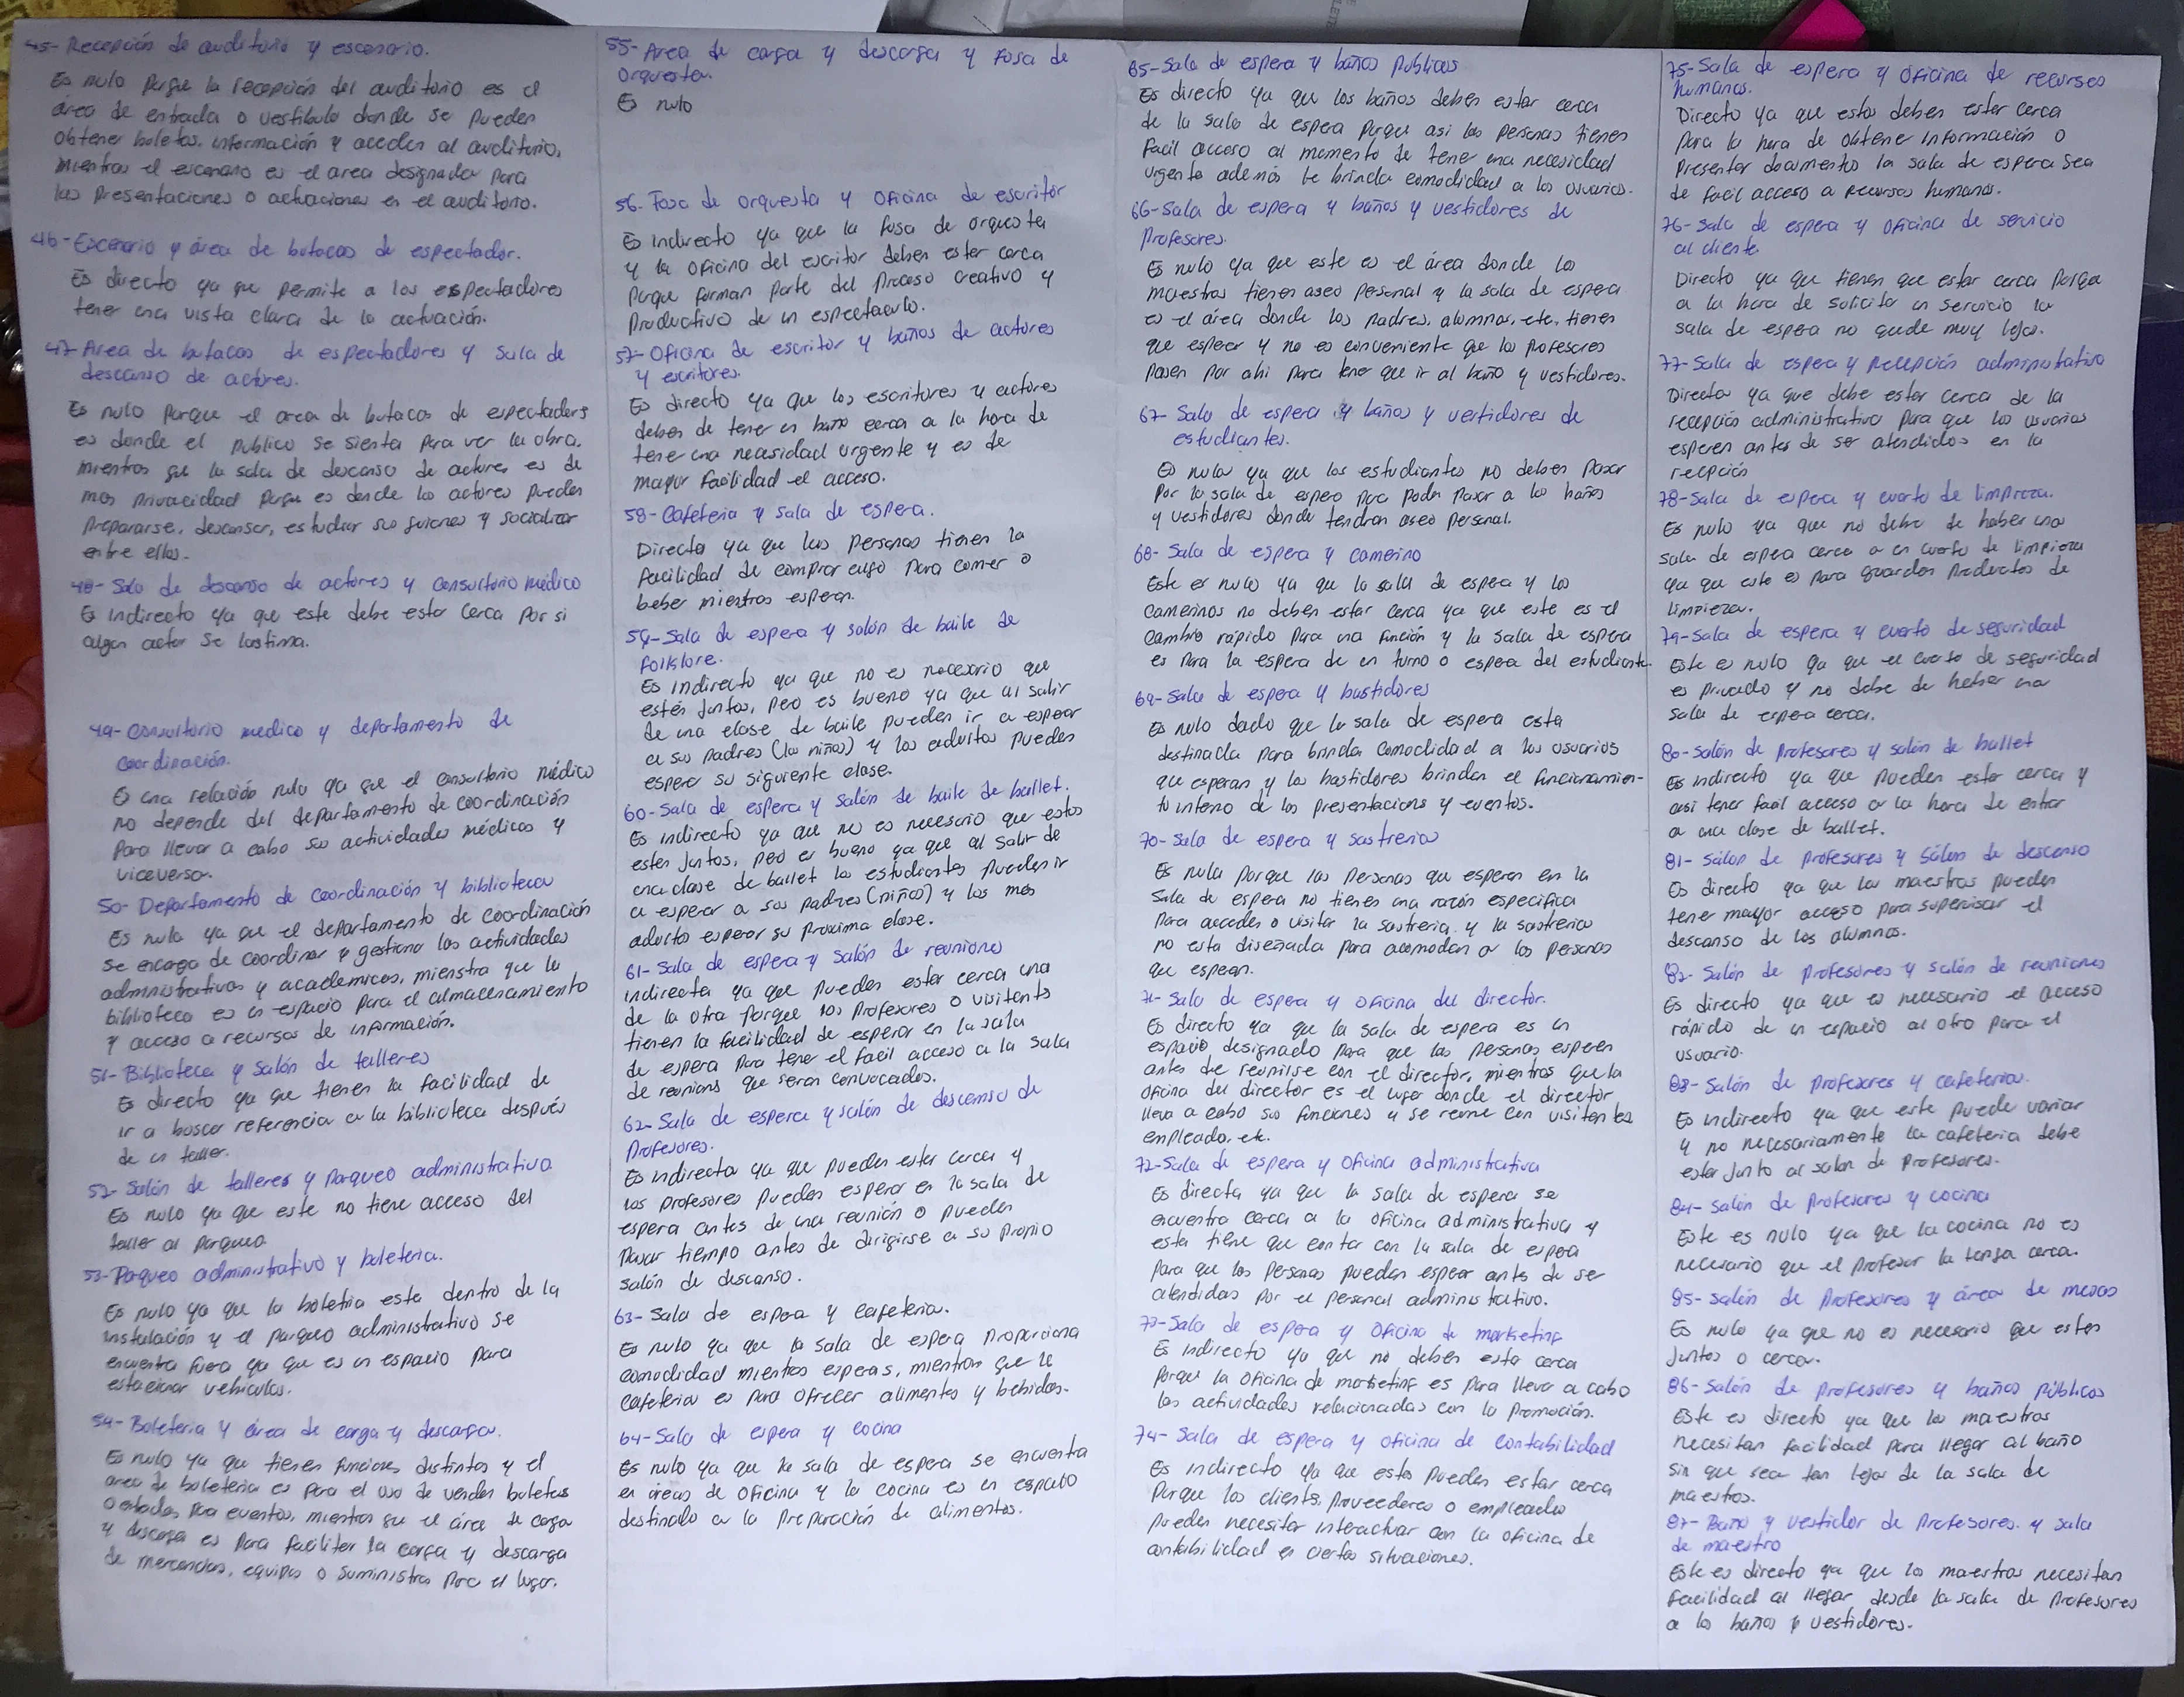 45- Recepción de auditorio y escenario.
Es nulo porque la recepción del auditorio es el
área de entrada o vestíbulo donde se pueden
obtener boletos, información y acceder al auditorio,
mientras el escenario es el area designada para
las presentaciones o actuaciones en el auditorio.
46- Escenario y área de butacas de espectador.
Es directo ya que permite a los espectadores
tener una vista clara de la actuación.
47- Area de butacas de espectadores y sala de
descanso de actores.
Es nulo porque el area de butacas de espectadores
es donde el publico se sienta para ver la obra.
mientras que la sala de descanso de actores es de
mas privacidad porque es donde los actores pueden
prepararse, descansar, estudiar sus guiones y socializar
entre ellos.
48- Sala de descanso de actores y consultorio médico
Es Indirecto ya que este debe estar cerca por si
algun actor se lastima.
49- Consultorio medico y departamento de
Coordinación.
Es una relación nula ya que el consultorio médico
no depende del departamento de coordinación
para llevar a cabo sus actividades médicas y
viceversa.
50- Departamento de Coordinación y biblioteca
Es nula ya que el departamento de coordinación
se encarga de coordinar y gestiona las actividades
administrativas y academicas, mienstra que la
biblioteca es un espacio para el almacenamiento
y acceso a recursos de información.
51- Biblioteca y salón de talleres
Es directo ya que tienen la facilidad de
ir a buscar referencia a la biblioteca después
de un taller.
52- Salón de talleres y Parqueo administrativo
Es nulo ya que este no tiene acceso del
taller al parqueo
53- Parqueo administrativo y boleteria.
Es nulo ya que la boletria esta dentro de la
instalación y el parqueo administrativo se
encuentra fuera ya que es un espacio para
estacionar vehiculos.
54- Boleteria y área de carga y descarga.
Es nulo ya que tienen funciones distintas y el
area de boleteria es para el uso de vender boletos
o entradas para eventos, mientras que el área de carga
y descarga es para faciliter la carga y descarga
de mercancias, equipos o suministros para el lugar.
55- Area de carga y descarga y Fosa de
orquesta.
Es nulo
56- Fosa de orquesta y oficina de escritor
Es Indirecto ya que la fosa de orquesta
y la oficina del escritor deben estar cerca
porque forman parte del proceso creativo y
productivo de un espectaculo.
57- Oficina de escritor y baños de actores
y escritores.
Es directo ya que los escritores y actores
deben de tener un baño cerca a la hora de
tener una necesidad urgente y es de
mayor facilidad el acceso.
58- Cafeteria y sala de espera.
Directa ya que las personas tienen la
facilidad de comprar algo para comer o
beber mientras esperan.
59- Sala de espera y salón de baile de
folklore.
Es indirecto ya que no es necesario que
estén juntos, pero es bueno ya que al salir
de una clase de baile pueden ir a esperar
a sus padres (los niños) y los adultos pueden
esperar su siguiente clase.
60- Sala de espera y salón de baile de ballet.
Es indirecto ya que no es necesario que estos
esten juntos, pero es bueno ya que al salir de
una clase de ballet los estudiantes pueden ir
a esperar a sus padres (niños) y los mas
adultos esperar su proxima clase.
61- Sala de espera y salón de reuniones
indirecta ya que pueden estar cerca una
de la otra porque los profesores o visitants
tienen la facilidad de esperar en la sala
de espera para tener el facil acceso a la sala
de reunions que seran convocados.
62- Sala de espera y salón de descanso de
Profesores.
Es indirecta ya que pueden estar cerca y
los profesores pueden esperar en la sala de
espera antes de una reunión o pueden
pasar tiempo antes de dirigirse a su propio
salón de descanso.
63- Sala de espera y cafeteria.
Es nulo ya que la sala de espera proporciona
comodidad mientras esperas, mientras que la
cafeteria es para ofrecer alimentos y bebidas.
64- Sala de espera y cocina
Es nulo ya que la sala de espera se encuentra
en áreas de oficina y la cocina es un espacio
destinado a la preparación de alimentos.
65- Sala de espera y baños publicos
Es directo ya que los baños deben estar cerca
de la sala de espera porque asi las personas tienen
facil acceso al momento de tener una necesidad
urgente además le brinda comodidad a los usuarios.
66- Sala de espera y baños y vestidores de
profesores.
Es nulo ya que este es el área donde los
maestros tienen aseo personal y la sala de espera
es el área donde los padres, alumnos, etc, tienen
que esperar y no es conveniente que los profesores
pasen por ahi para tener que ir al baño y vestidores.
67- Sala de espera y baños y vestidores de
estudiantes.
Es nula ya que los estudiantes no deben pasar
por la sala de espera para poder pasar a los baños
y vestidores donde tendran aseo personal.
68- Sala de espera y camerino
Este es nulo ya que la sala de espera y los
camerinos no deben estar cerca ya que este es el
cambio rápido para una función y la sala de espera
es para la espera de un turno o espera del estudiante.
69- Sala de espera y bastidores
Es nulo dado que la sala de espera esta
destinada para brinda comodidad a los usuarios
que esperan y los bastidores brindan el funcionamien-
to interno de las presentacions y eventos.
70- Sala de espera y sastreria
Es nula porque las personas que esperan en la
sala de espera no tienen una razón especifica
para acceder o visitar la sastreria y la sastreria
no esta diseñada para acomodar a las personas
que esperan.
71- Sala de espera y oficina del director.
Es directo ya que la sala de espera es un
espacio designado para que las personas esperen
antes de reunirse con el director, mientras que la
oficina del director es el lugar donde el director
lleva a cabo sus funciones y se reune con visitantes
empleado, etc.
72- Sala de espera y oficina administrativa
Es directa ya que la sala de espera se
encuentra cerca a la oficina administrativa y
esta tiene que contar con la sala de espera
para que las personas puedan esperar antes de ser
atendidas por el personal administrativo.
73- Sala de espera y oficina de marketing
Es indirecto ya que no deben estar cerca
porque la oficina de marketing es para llevar a cabo
las actividades relacionadas con la promoción.
74- Sala de espera y oficina de contabilidad
Es indirecto ya que estos pueden estar cerca
porque los clients, proveedores o empleados
pueden necesitar interactuar con la oficina de
contabilidad en ciertas situaciones.
75- Sala de espera y oficina de recursos
humanos.
Directo ya que estos deben estar cerca
para la hora de obtener información o
presentar documentos la sala de espera sea
de facil acceso a recursos humanos.
76- Sala de espera y oficina de servicio
al cliente
Directo ya que tienen que estar cerca porque
a la hora de solicitar un servicio la
sala de espera no quede muy lejos.
77- Sala de espera y recepción administrativa
Directa ya que debe estar cerca de la
recepción administrativa para que los usuarios
esperen antes de ser atendidos en la
recepción
78- Sala de espera y cuarto de limpieza.
Es nulo ya que no debe de haber una
sala de espera cerca a un cuarto de limpieza
ya que este es para guardar productos de
limpieza.
79- Sala de espera y cuarto de seguridad
Este es nulo ya que el cuarto de seguridad
es privado y no debe de haber una
sala de espera cerca.
80- Salón de profesores y salón de ballet
Es indirecto ya que pueden estar cerca y
asi tener facil acceso a la hora de entrar
a una clase de ballet.
81- Salón de profesores y salón de descanso
Es directo ya que los maestros pueden
tener mayor acceso para supervisar el
descanso de los alumnos.
82- Salón de profesores y salón de reuniones
Es directo ya que es necesario el acceso
rápido de un espacio al otro para el
usuario.
83- Salón de profesores y cafeteria.
Es indirecto ya que este puede variar
y no necesariamente la cafeteria debe
estar junto al salon de profesores.
84- Salón de profesores y cocina
Este es nulo ya que la cocina no es
necesario que el profesor la tenga cerca.
85- Salón de profesores y área de mesas
Es nulo ya que no es necesario que esten
juntos o cerca.
86- Salón de profesores y baños públicos
Este es directo ya que los maestros
necesitan facilidad para llegar al baño
sin que sea tan lejos de la sala de
maestros.
87- Baño y vestidor de profesores y sala
de maestro
Este es directo ya que los maestros necesitan
facilidad al llegar desde la sala de profesores
a los baños y vestidores.